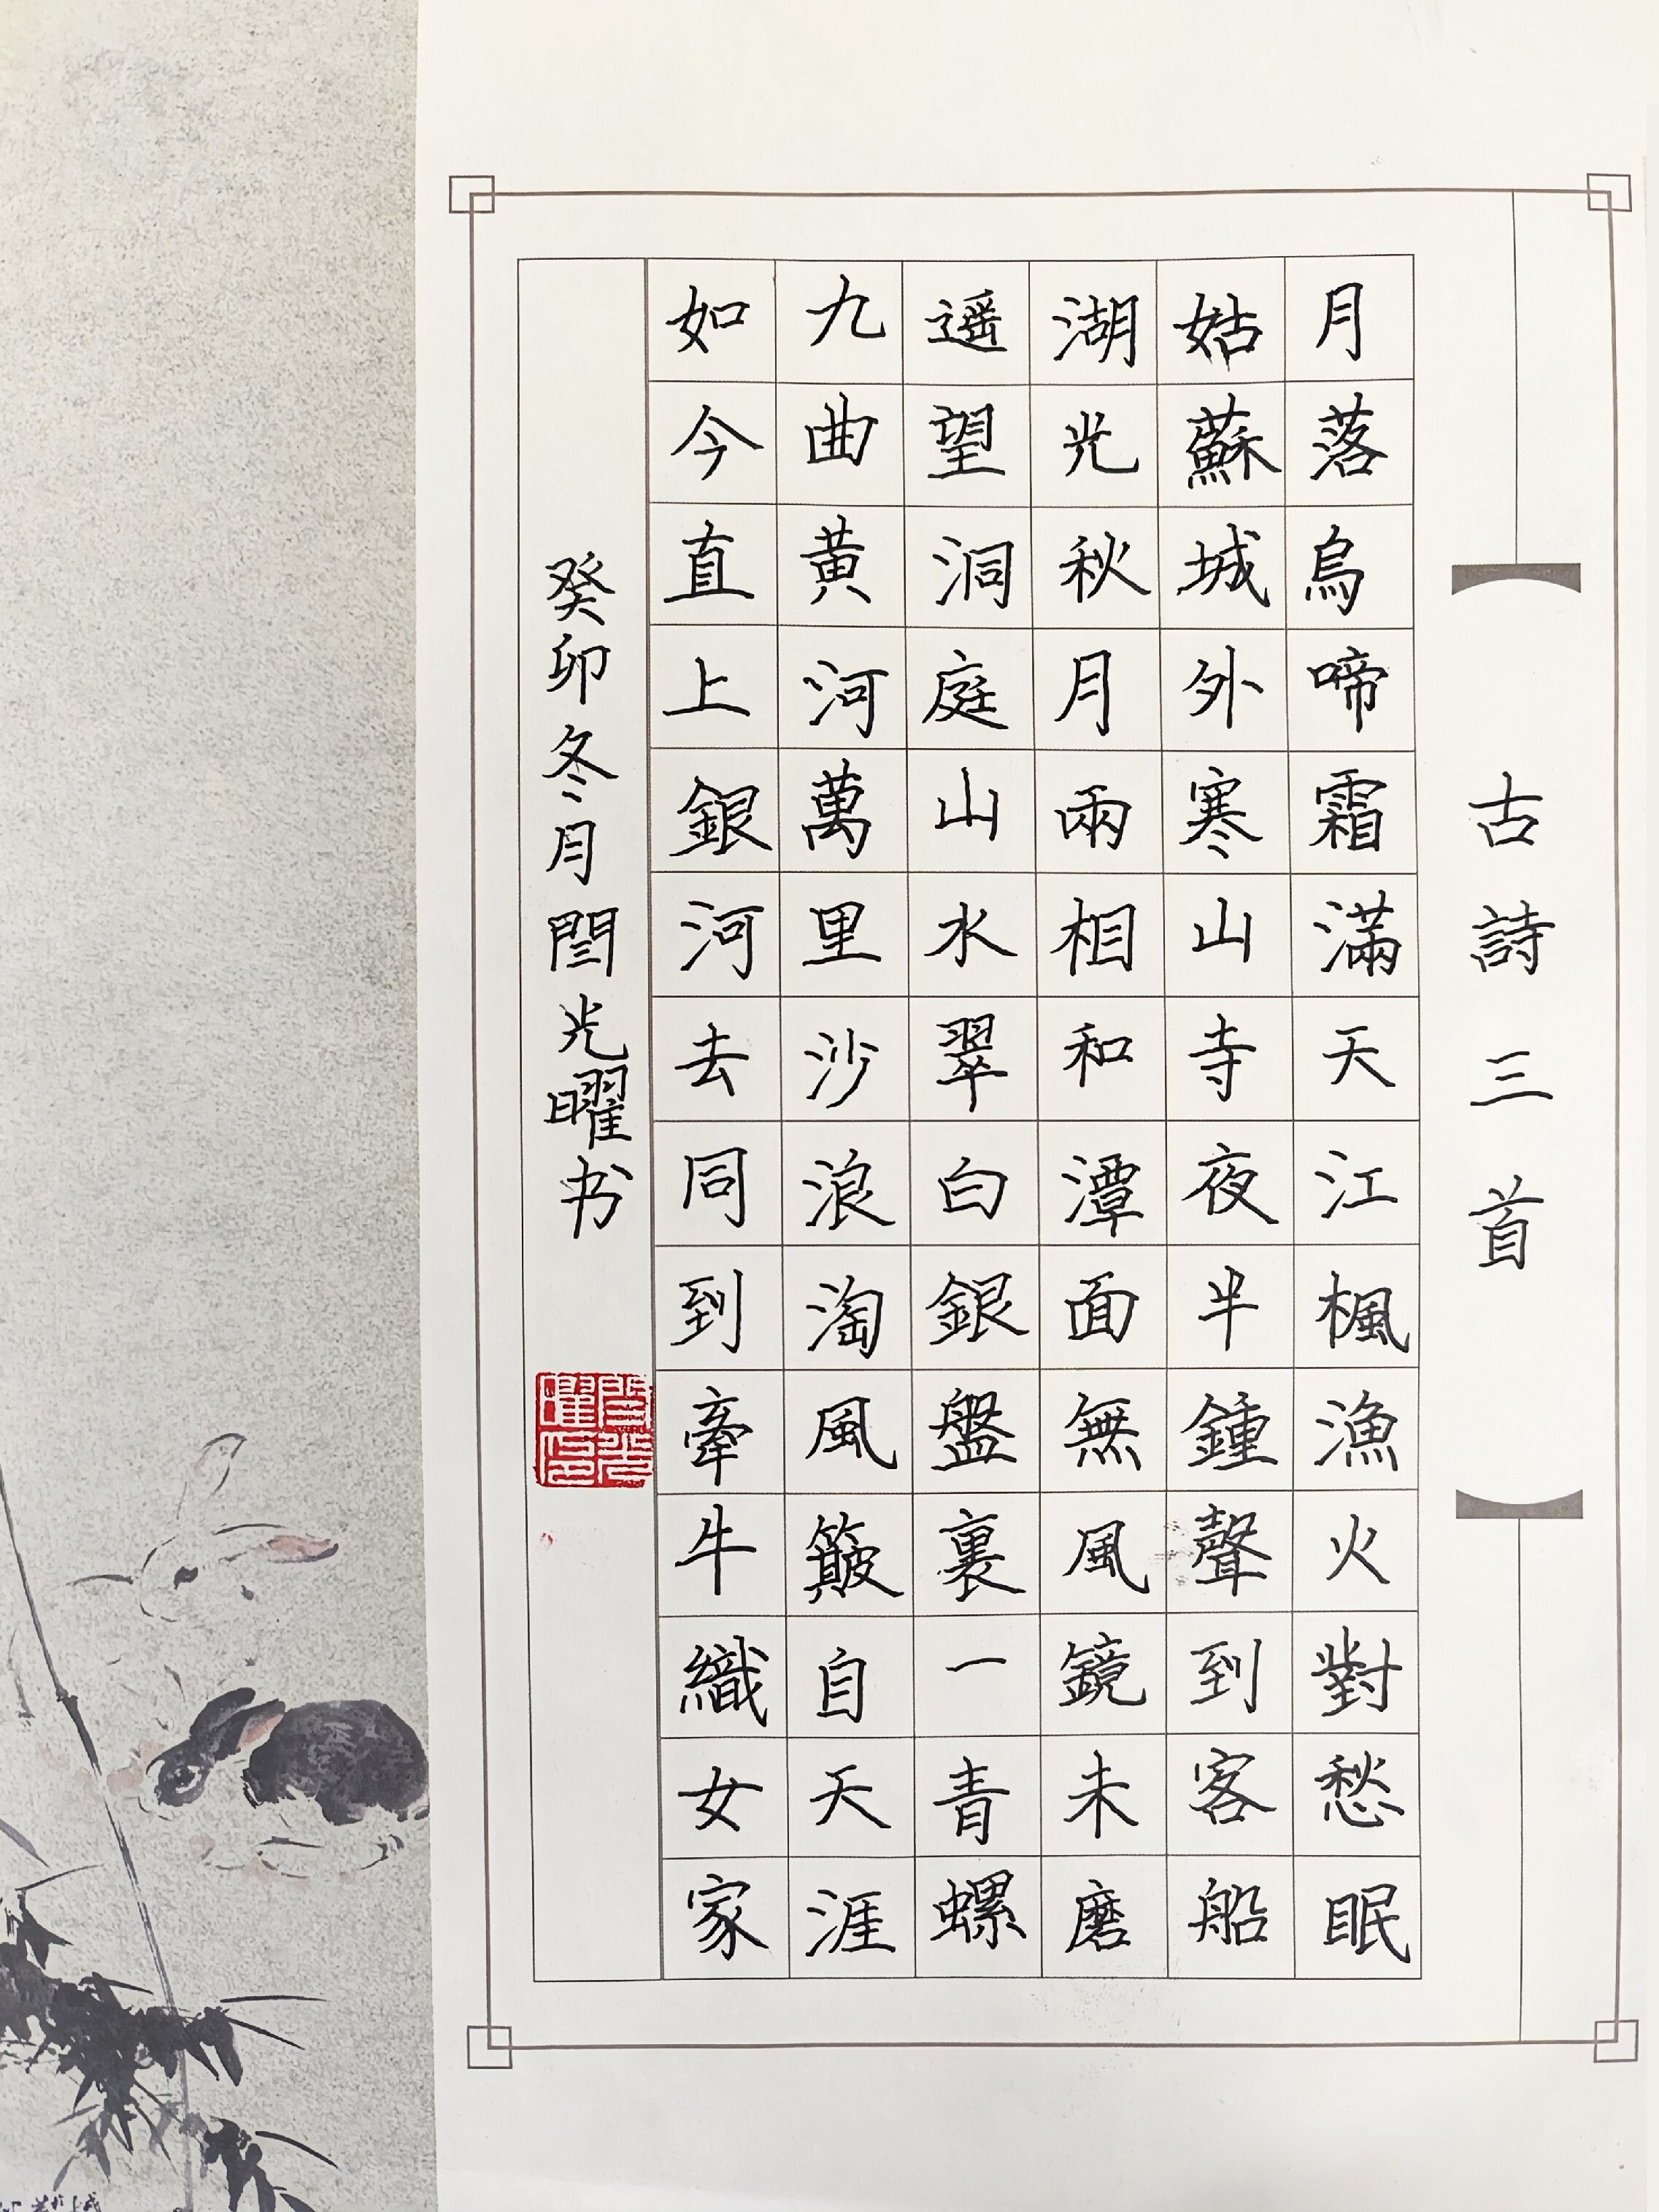 古詩三首
月落烏啼霜滿天江楓漁火對愁眠
姑蘇城外寒山寺夜半鍾聲到客船
湖光秋月兩相和潭面無風鏡未磨
遥望洞庭山水翠白銀盤裏一青螺
九曲黃河萬里沙浪淘風簸自天涯
如今直上銀河去同到牽牛織女家
癸卯冬月閆光曜书
閆光曜印